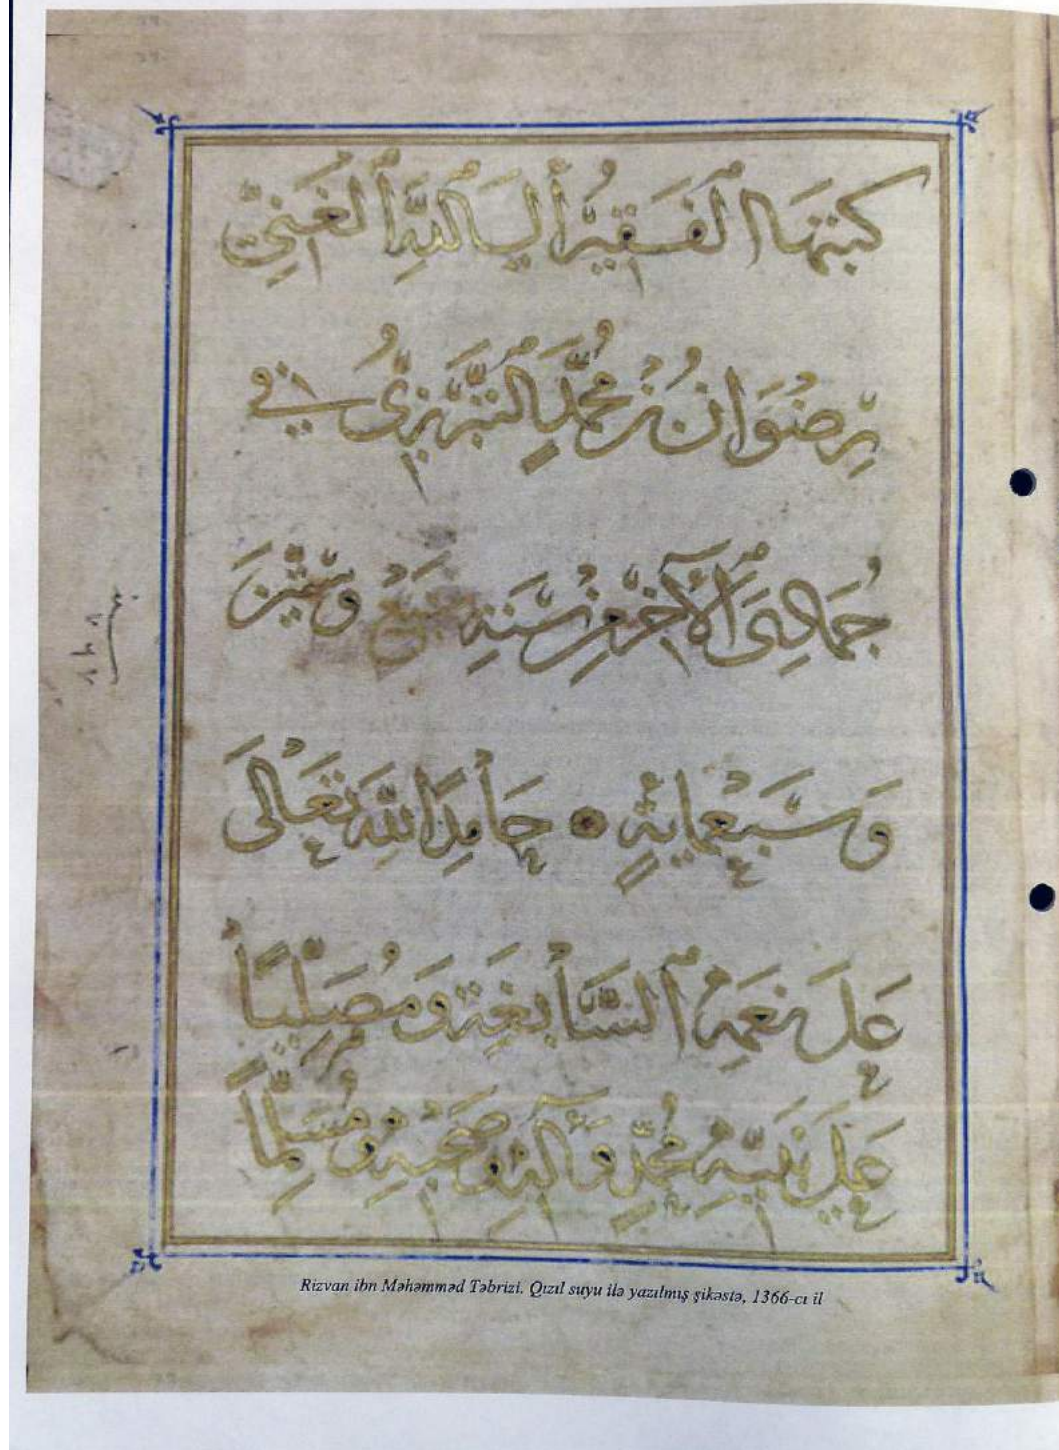 كَتَبَهَا ٱلْفَقِيرُ إِلَى ٱللَّهِ ٱلْغَنِيِّ
رِضْوَانُ بْنُ مُحَمَّدٍ ٱلتَّبْرِيزِيُّ فِي
جُمَادَى ٱلْآخِرِ مِنْ سَنَةِ سَبْعٍ وَسِتِّينَ
وَسَبْعِمِايَةٍ حَامِدًا لِلَّهِ تَعَالَى
عَلَى نِعَمِهِ ٱلسَّابِغَةِ وَمُصَلِّيًا
عَلَى نَبِيِّهِ مُحَمَّدٍ وَآلِهِ وَصَحْبِهِ وَمُسَلِّمًا
سنه
٧٦٧
Rizvan ibn Məhəmməd Təbrizi. Qızıl suyu ilə yazılmış şikəstə, 1366-cı il